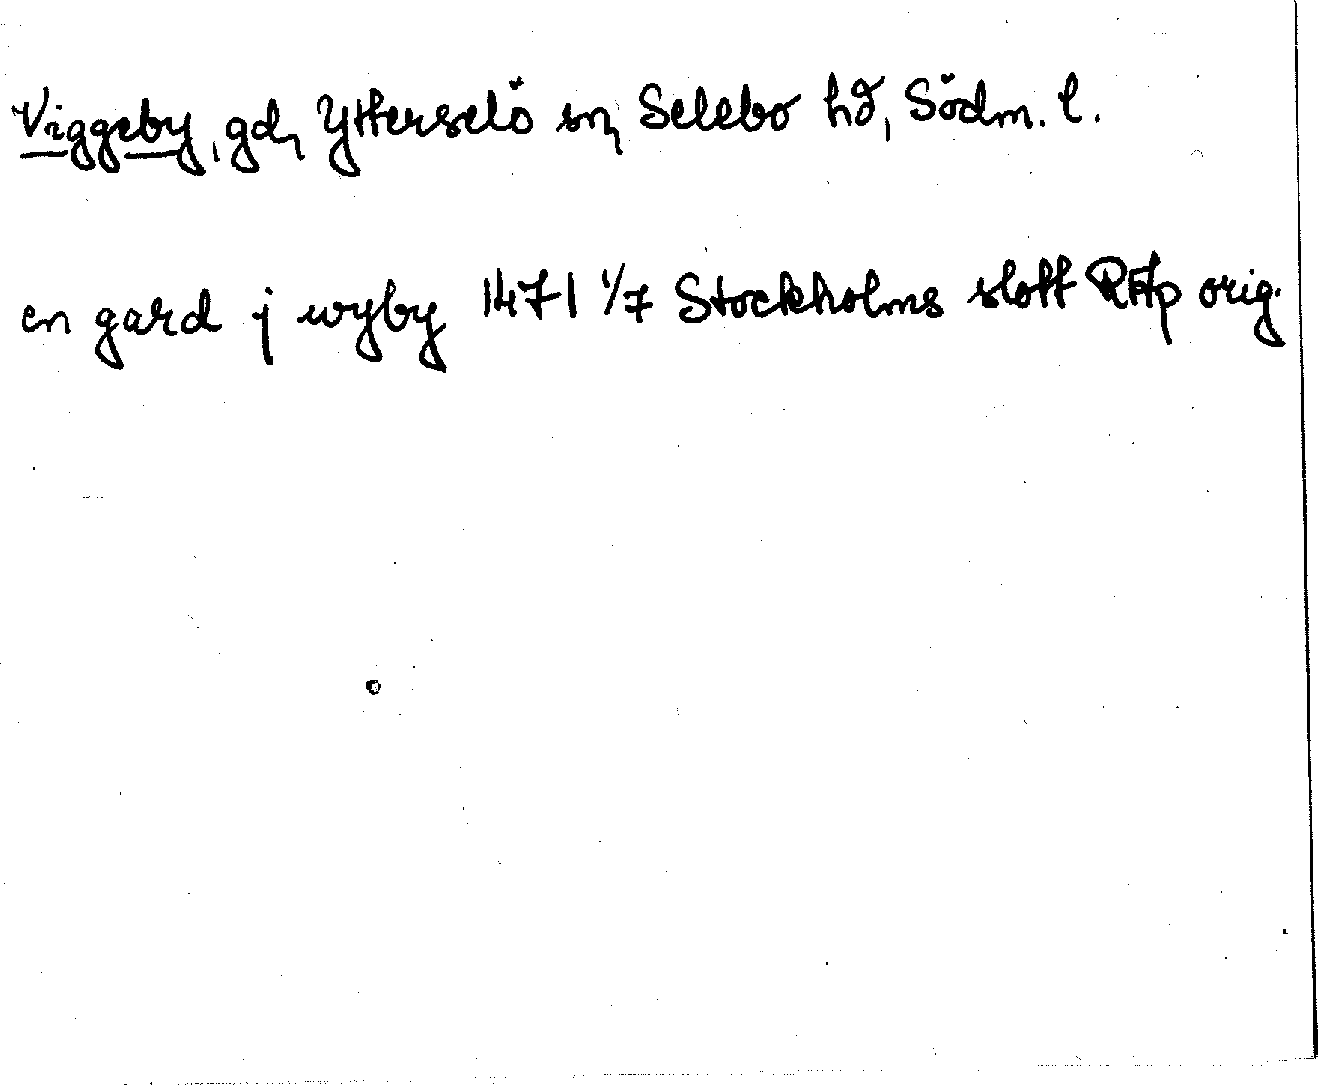 Viggeby, gd, Ytterselö sn, Selebo hd, Södm. l.
en gard j wyby 1471 1/7 Stockholms slott RAp orig.